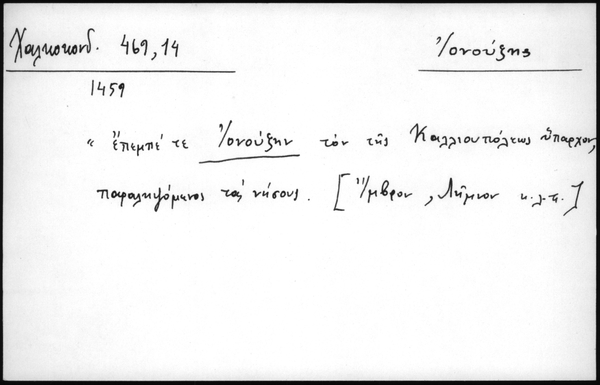 Χαλκοκονδ. 469,14
Ἰονούζης
1459
« ἔπεμπέ τε Ἰονούζην τὸν τῆς Καλλιουπόλεως ὕπαρχον,
παραληψόμενος τὰς νήσους. [Ἴμβρον, Λῆμνον κ.λ.π.]